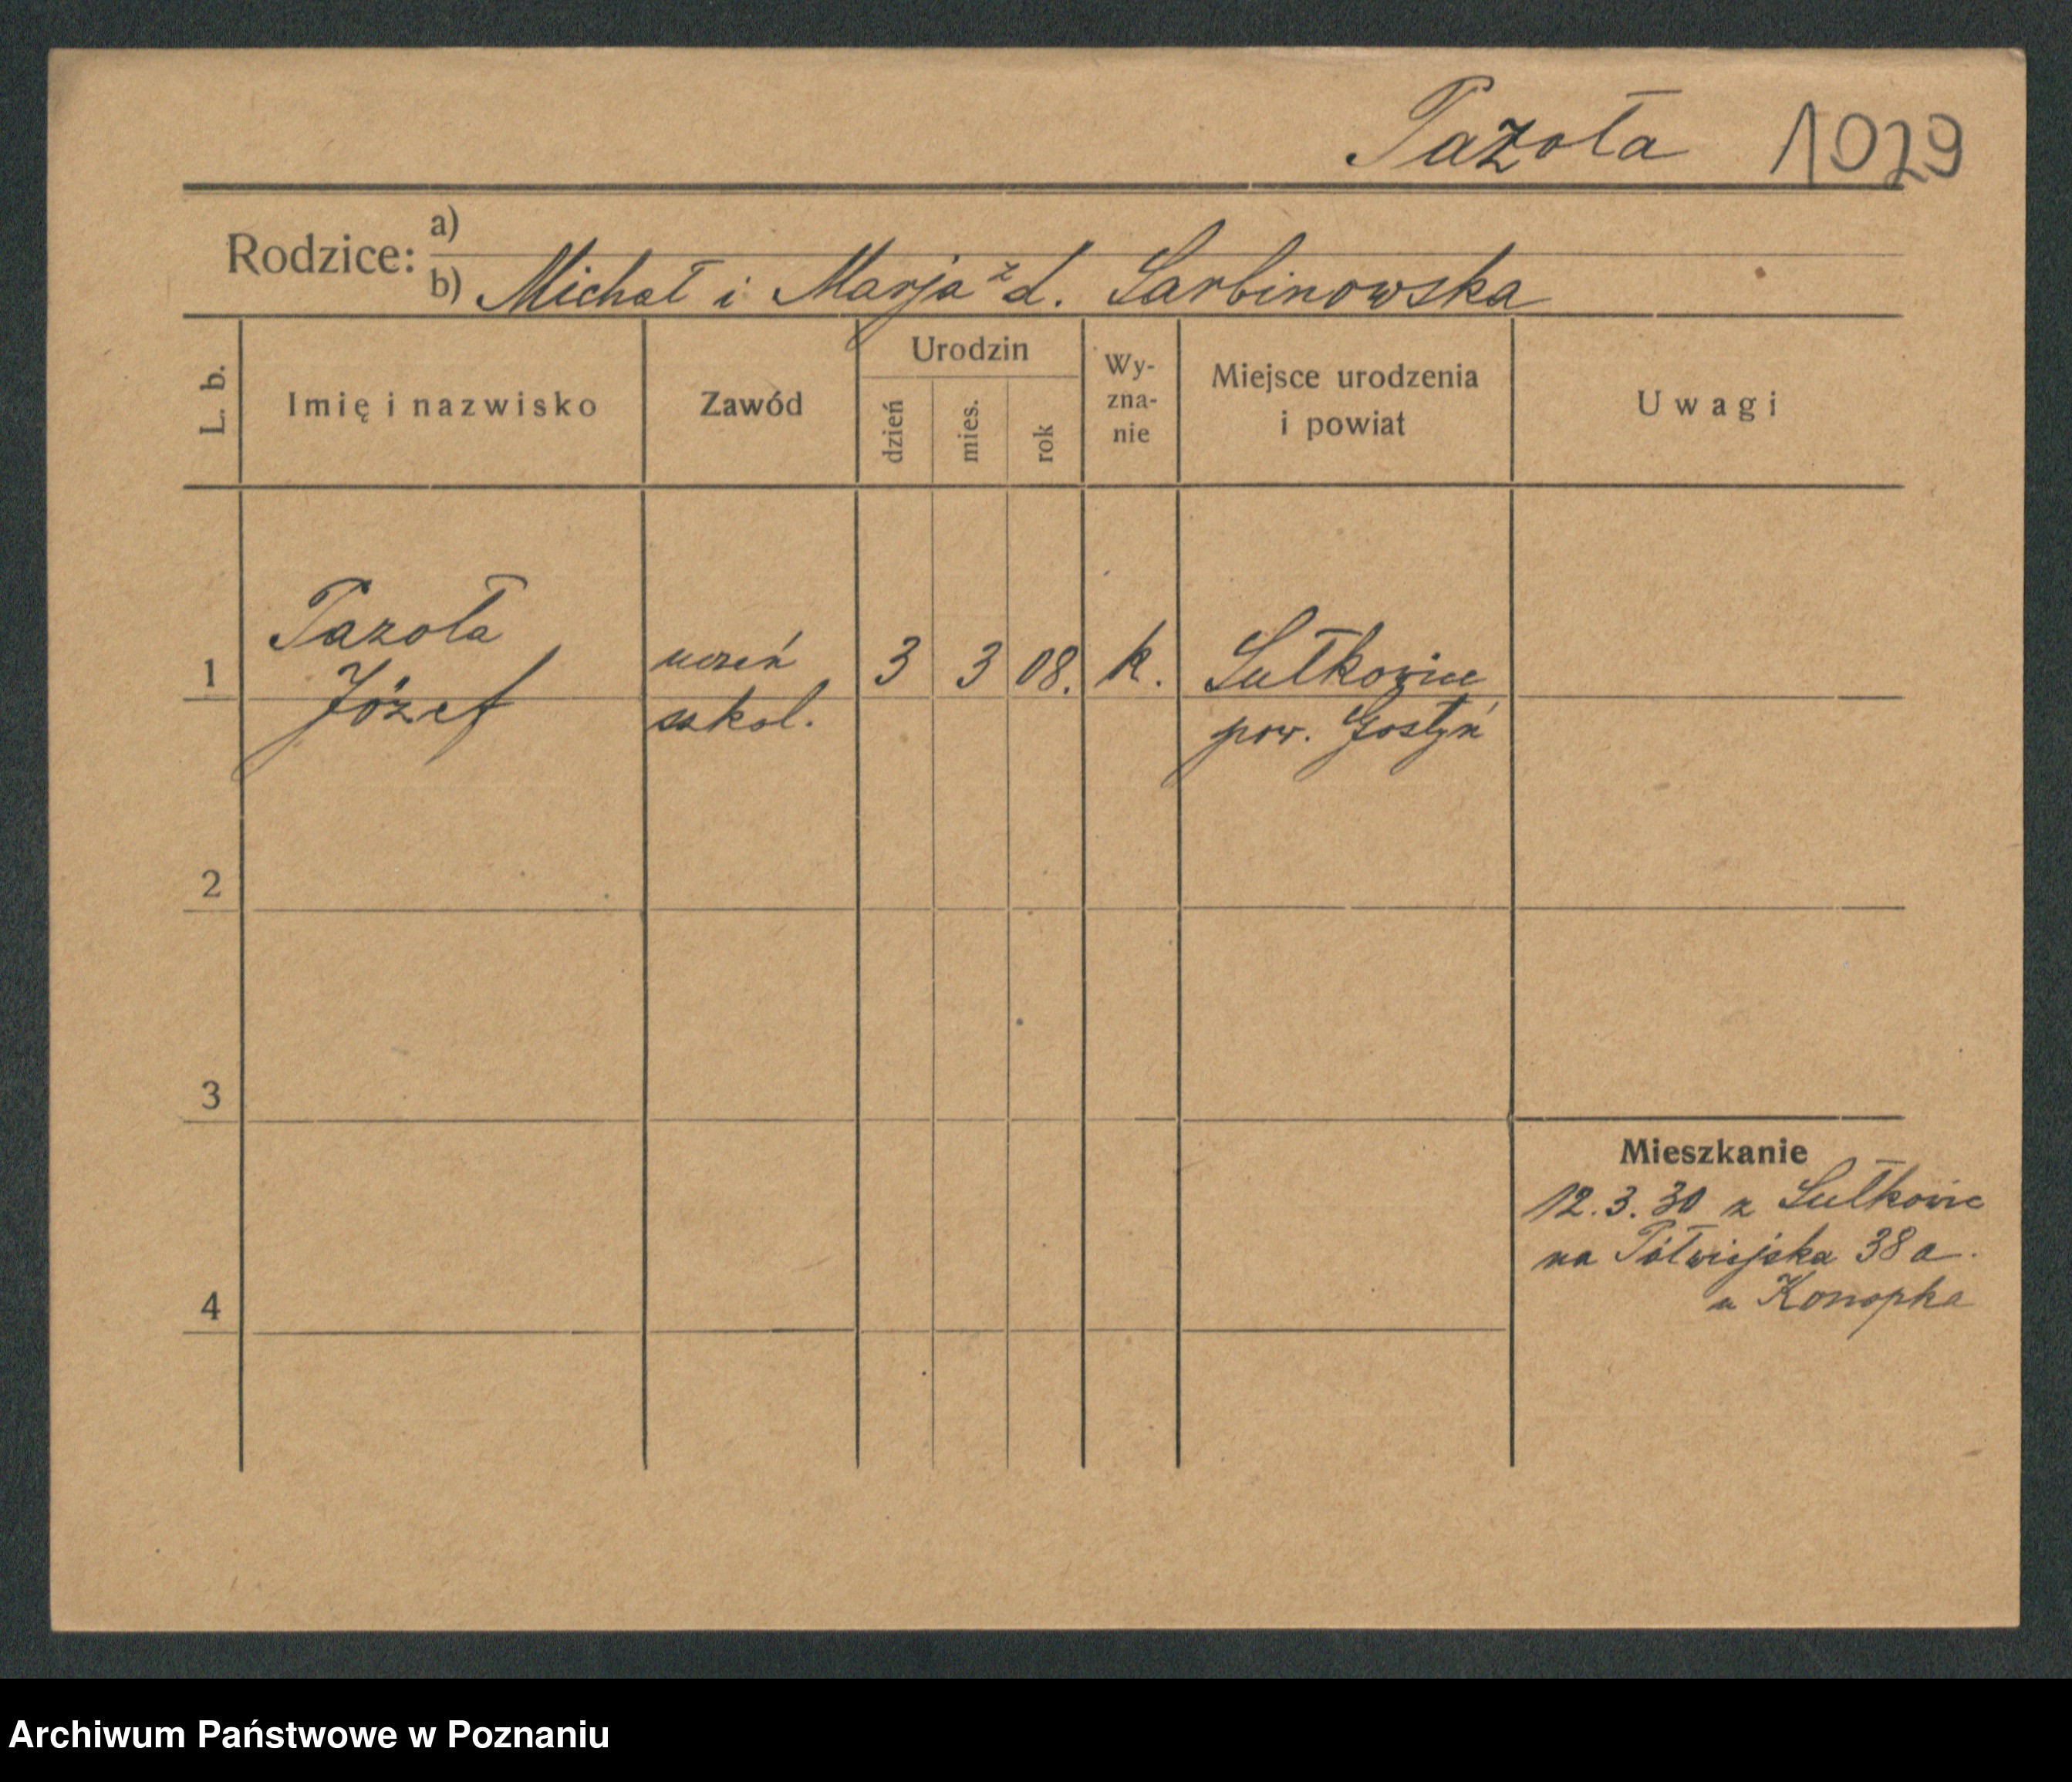 Pazoła 1029
Rodzice: a)
b) Michał i Marja z d. Sarbinowska
L. b. Imię i nazwisko Zawód Urodzin dzień mies. rok Wy-zna-nie Miejsce urodzenia i powiat Uwagi
1 Pazoła Józef uczeń szkol. 3 3 08. k. Sułkowice pow. Gostyń
2
3
4
Mieszkanie
12.3.30 z Sułkowic
na Półwiejska 38 a.
u Konopka
Archiwum Państwowe w Poznaniu